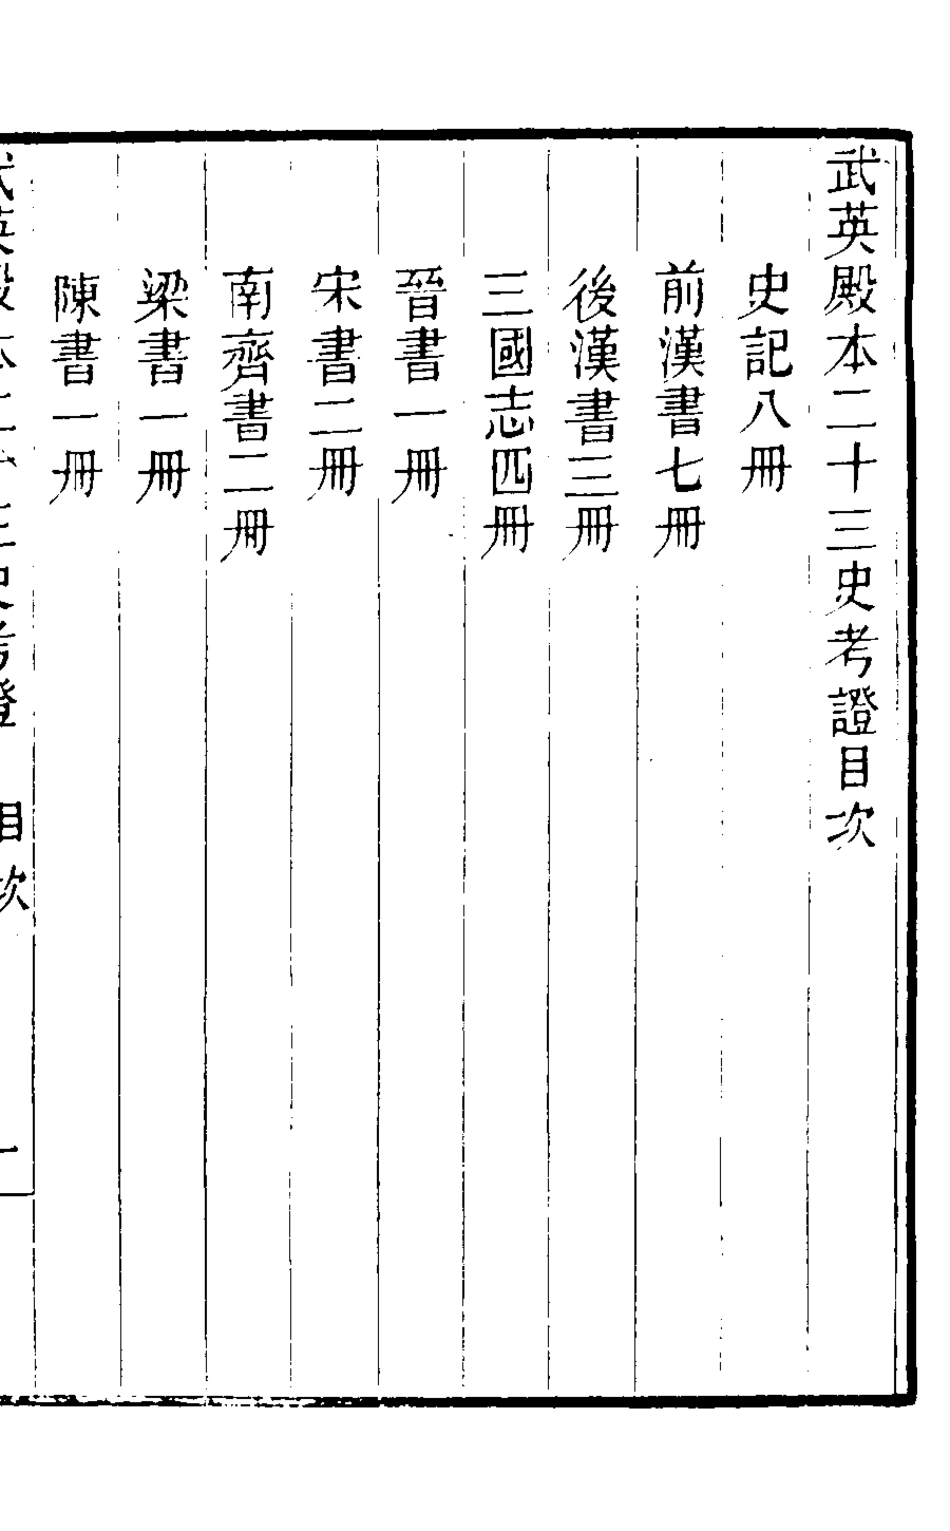 武英殿本二十三史考證目次
史記八冊
前漢書七冊
後漢書三冊
三國志四冊
晉書一冊
宋書二冊
南齊書二冊
梁書一冊
陳書一冊
武英殿本二十三史考證 目次 一